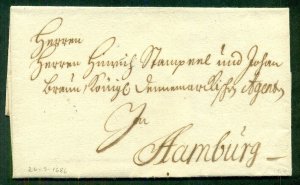 Herren
Herren Hinrich Stampeel und Johan
Braun Königl Dennemarckischen Agenten
In
Hamburg
20-3-1686